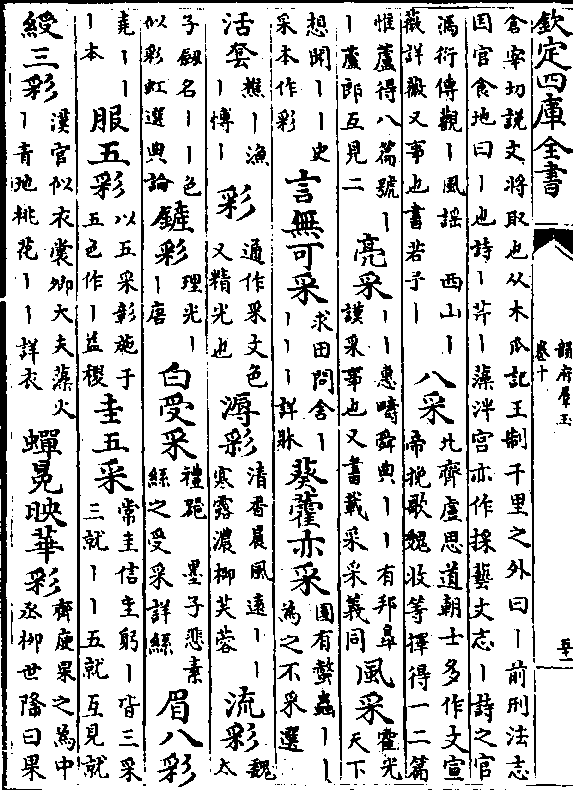 欽定四庫全書
韻府羣玉
卷十
倉宰切説文將取也从木爪記王制千里之外曰丨前刑法志
因官食地曰丨也詩丨芹丨藻泮宫亦作採藝文志丨詩之官
馮衍傳觀丨風謡 西山丨
薇詳薇又事也書若予丨
八采
北齊盧思道朝士多作文宣
帝挽歌魏收等擇得一二篇
惟盧得八篇號丨
丨盧郎互見二
亮采
丨丨惠疇舜典丨丨有邦皐
謨采事也又書載采采義同
風采
霍光
天下
想聞丨丨史
采本作彩
言無可采
求田問舍丨
丨丨丨詳臥
葵藿亦采
園有螫蟲丨丨
為之不采選
活套
樵丨漁
丨博丨
彩
通作采文色
又精光也
溽彩
清香晨風遠丨丨
寒露濃柳芙蓉
流彩
魏
太
子劔名丨丨色
似彩虹選典論
鏟彩
理光丨
丨唐
白受采
禮 墨子悲素
絲之受采詳絲
眉八彩
堯丨丨
丨本
服五彩
以五采彰施于
五色作丨益稷
圭五采
常圭信圭躬丨皆三采
三就丨丨五就互見就
綬三彩
漢官似衣裳卿大夫藻火
丨青地桃花丨丨詳衣
蟬冕映華彩
齊庾杲之為中
丞柳世隆曰果